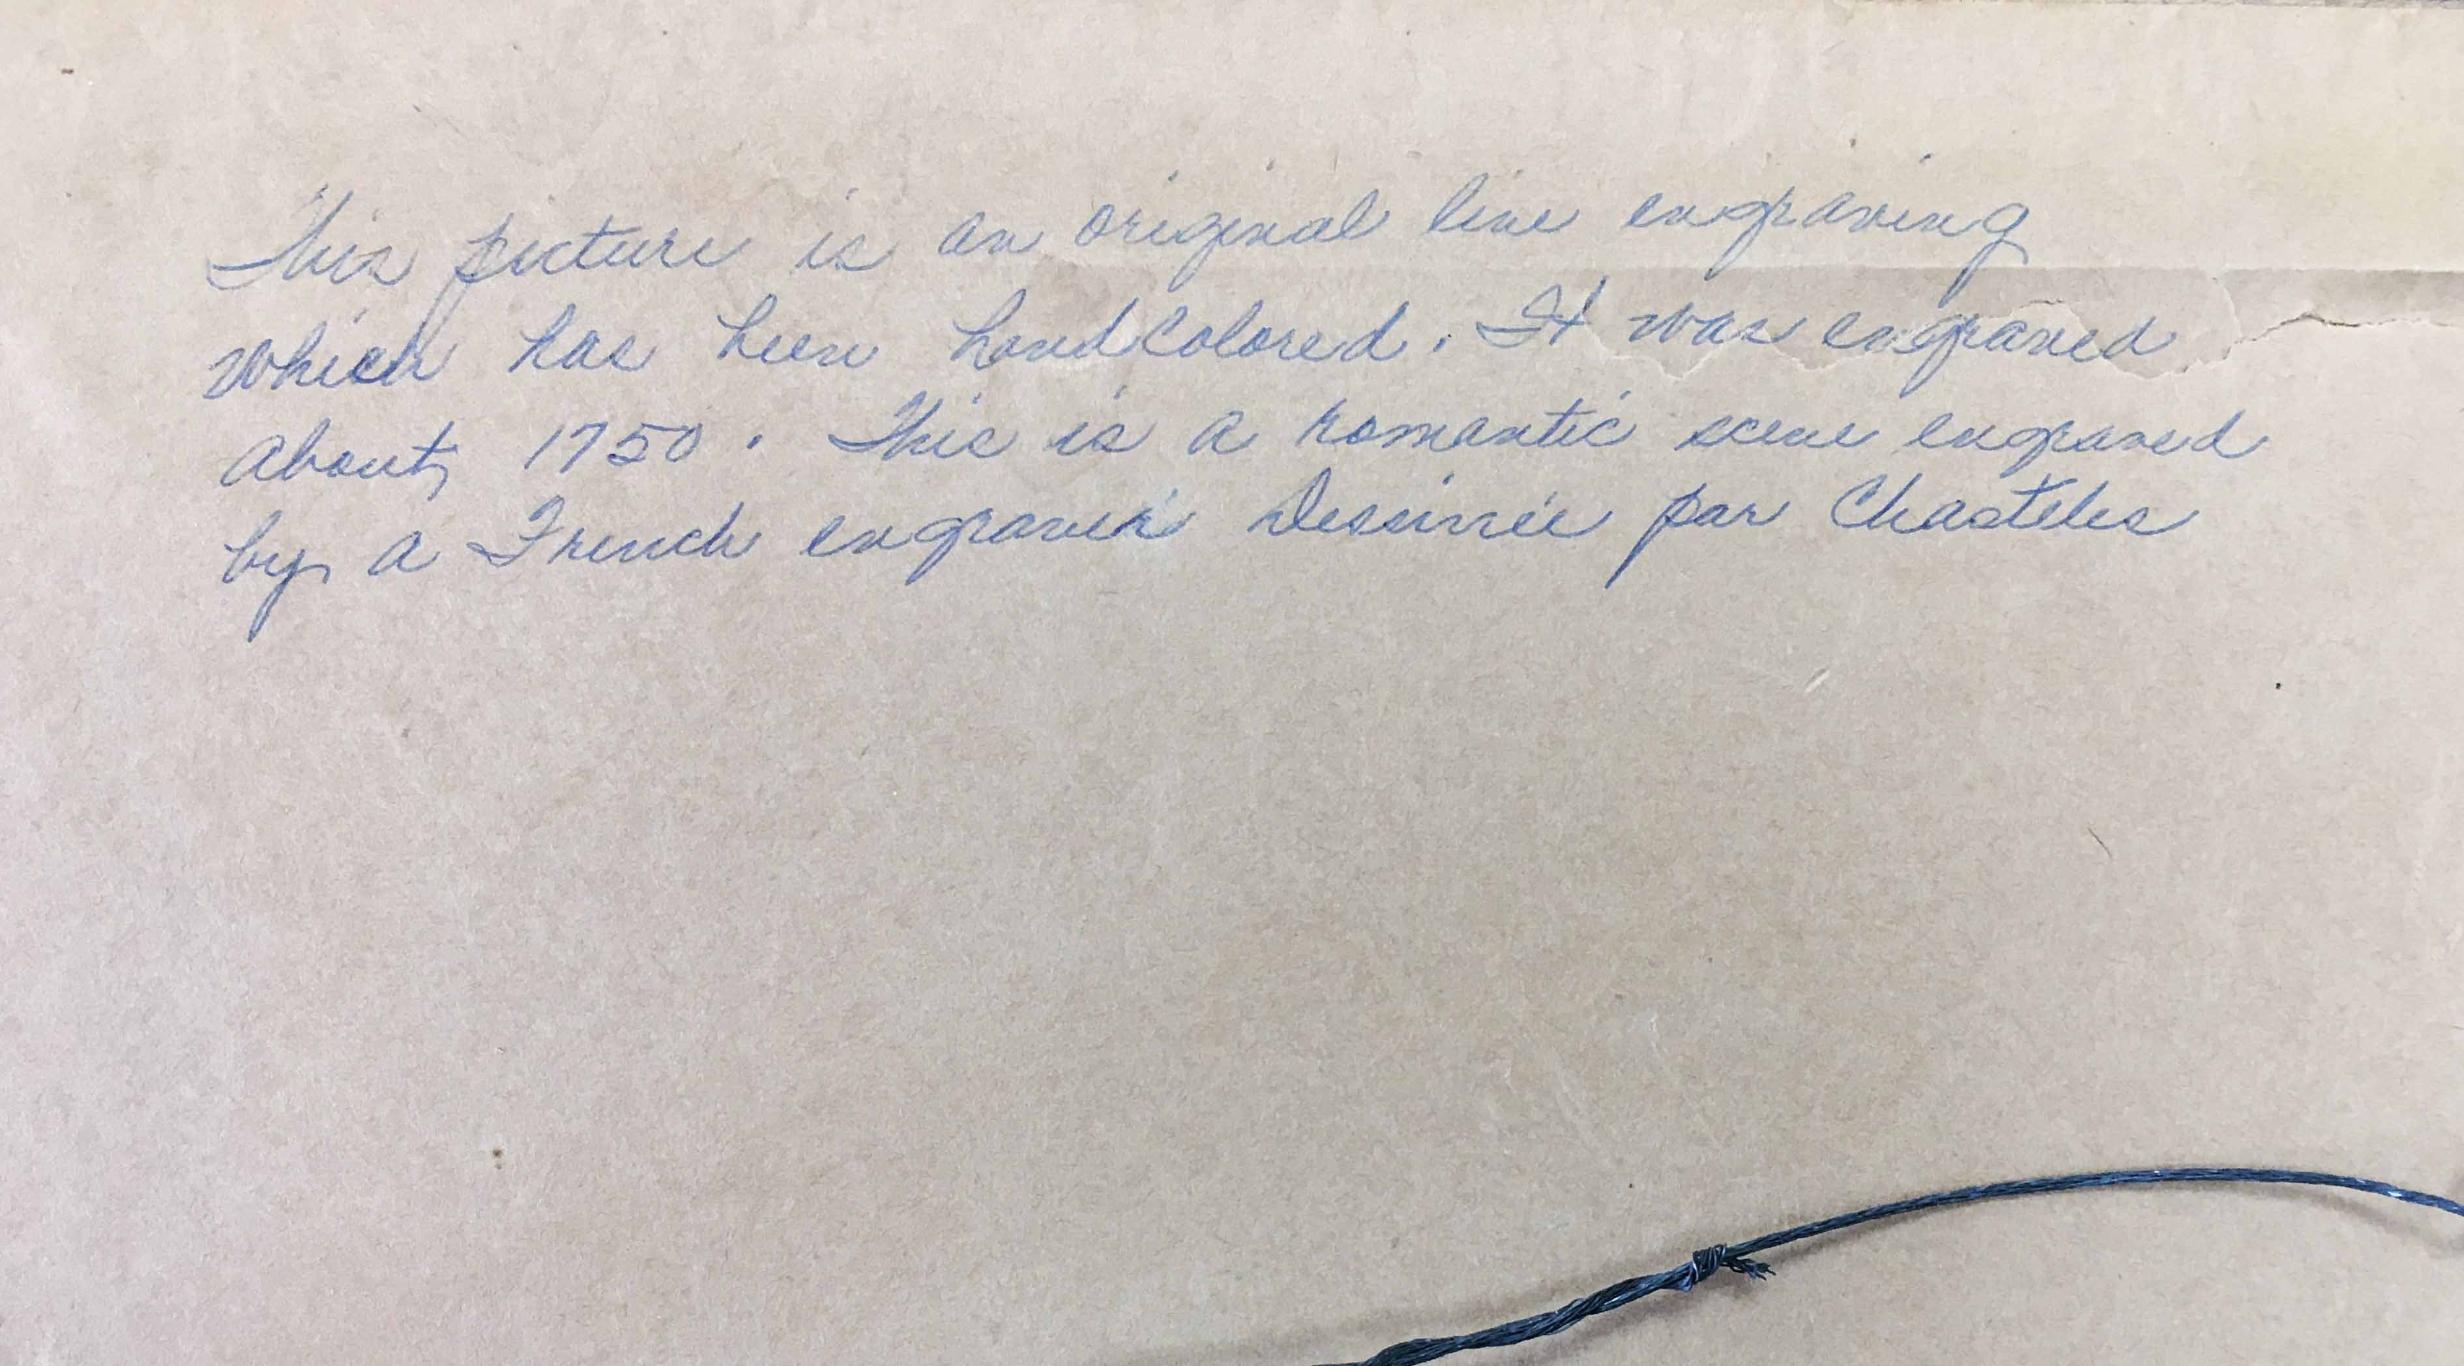 This picture is an original line engraving
which has been handcolored. It was engraved
about 1750. This is a romantic scene engraved
by a French engraver Dessinée par Chasteles